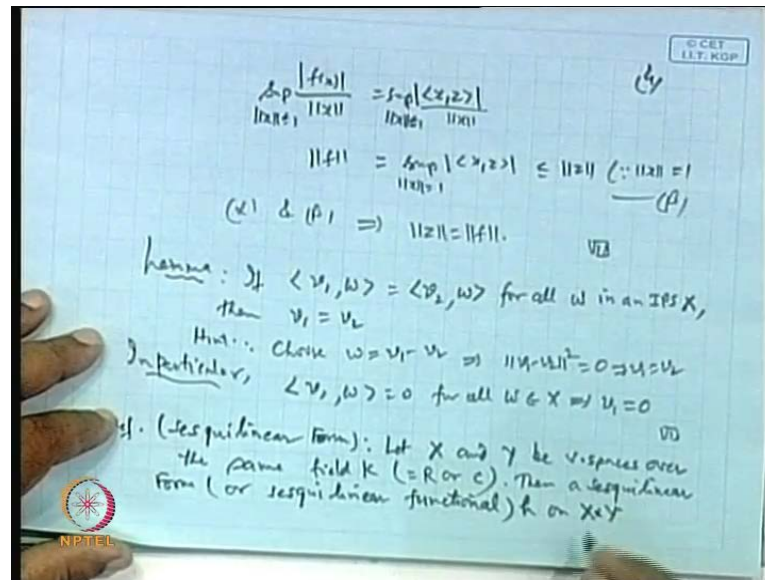 © CET
I.I.T. KGP
Sup |f(x)| / ||x|| = Sup |<x,z>| / ||x||
||x||≤1 ||x||≤1
||f|| = Sup |<x,z>| ≤ ||z|| (∵ ||x|| = 1
||x||=1
(β)
(α) & (β) ⇒ ||z|| = ||f||.
Lemma: If <v₁, w> = <v₂, w> for all w in an IPS X,
then v₁ = v₂
Hint.. Choose w = v₁ - v₂ ⇒ ||v₁-v₂||² = 0 ⇒ v₁ = v₂
In particular, <v₁, w> = 0 for all w ∈ X ⇒ v₁ = 0
ef. (Sesquilinear Form): Let X and Y be v. spaces over
the same field K (= R or C). Then a sesquilinear
Form (or sesquilinear functional) h on X×Y
NPTEL